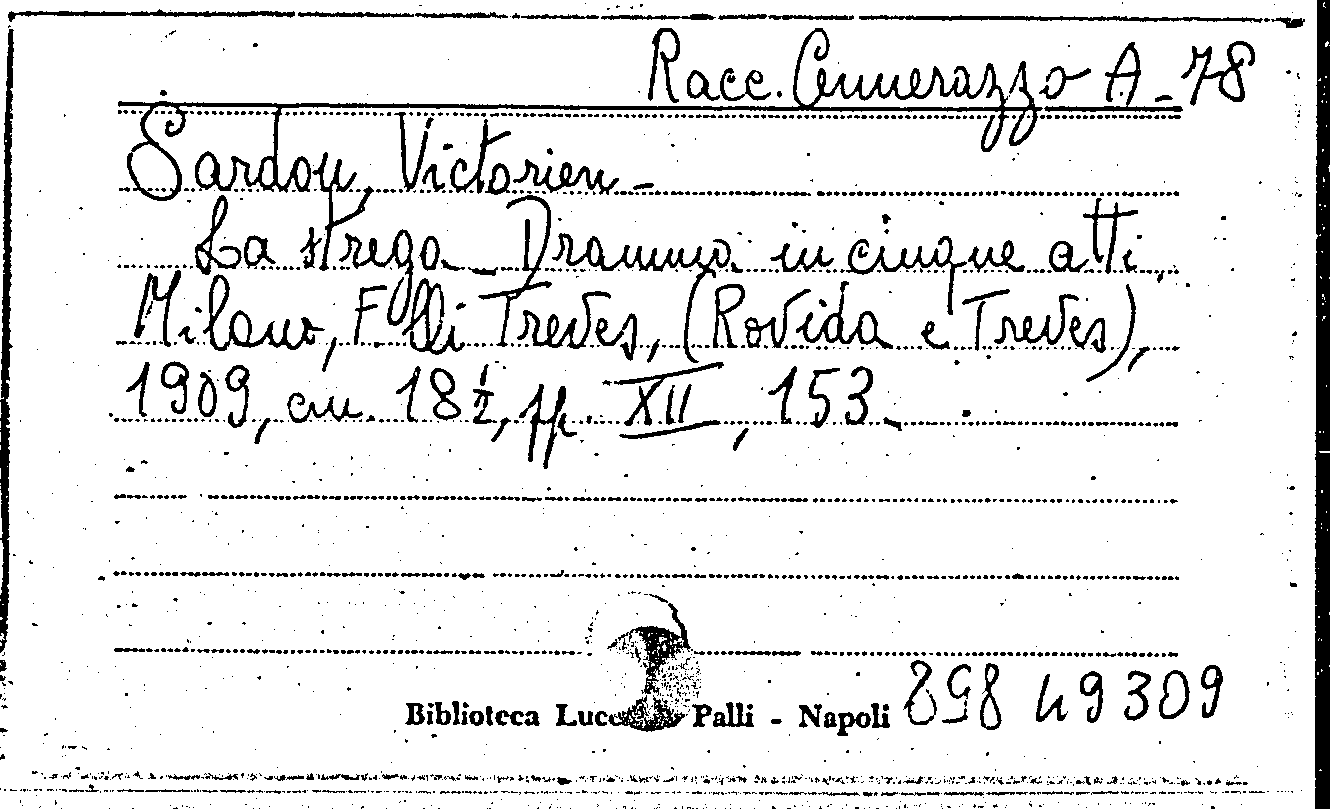 Racc. Cennerazzo A-78
Sardou, Victorien -
La strega - Dramma in cinque atti.
Milano, F.lli Treves, (Rovida e Treves),
1909, cm. 18½, pp. XII, 153 -
Biblioteca Palli - Napoli 898 49309